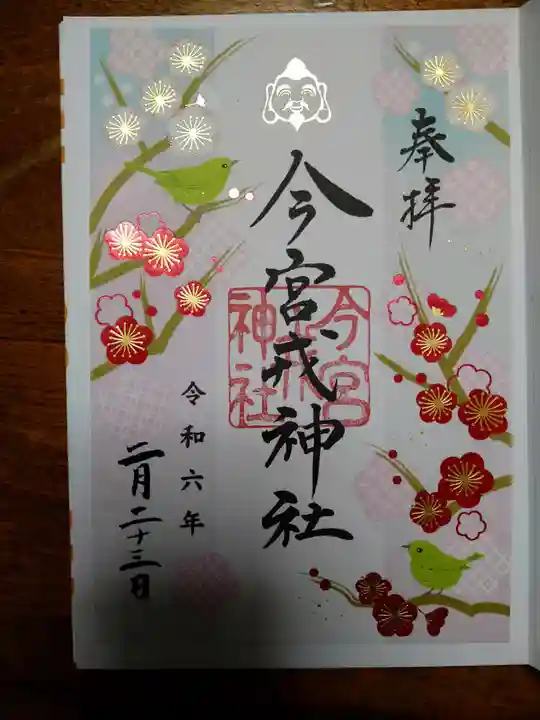 奉拝
今宮戎神社
今宮戎神社
令和六年
二月二十三日